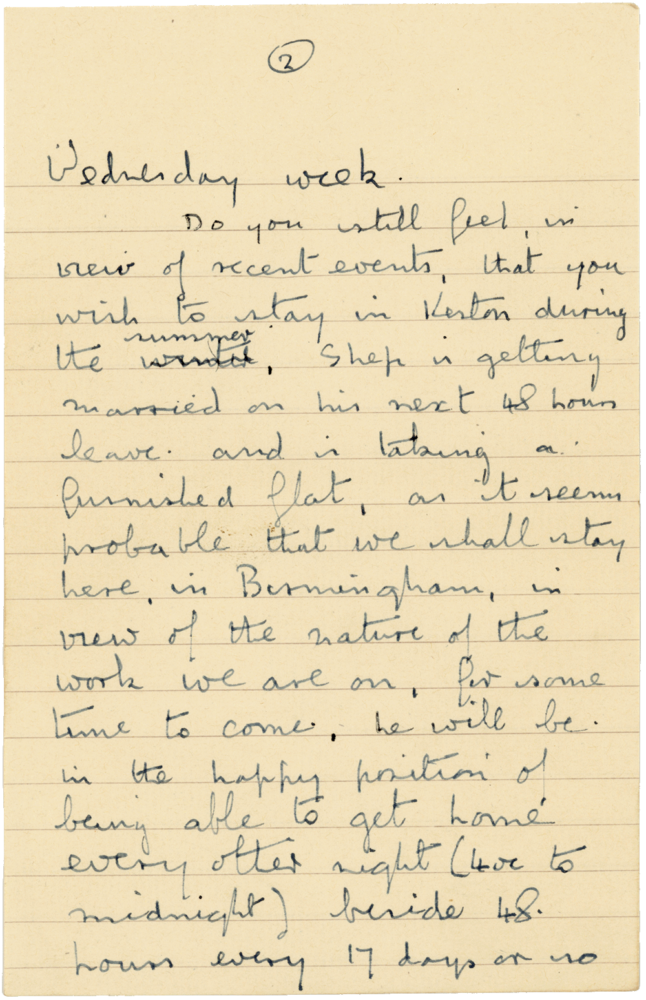 2
Wednesday week.
Do you still feel, in
view of recent events, that you
wish to stay in Keston during
summer
the winter, Shep is getting
married on his next 48 hours
leave. and is taking a
furnished flat, as it seems
probable that we shall stay
here, in Birmingham, in
view of the nature of the
work we are on, for some
time to come, he will be
in the happy position of
being able to get home
every other night (4oc to
midnight) beside 48
hours every 17 days or so